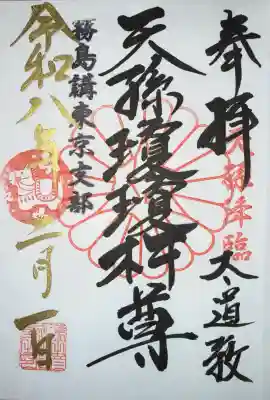 奉拝
天孫降臨
大道教
天孫瓊瓊杵尊
霧島講東京支部
令和八年二月一日